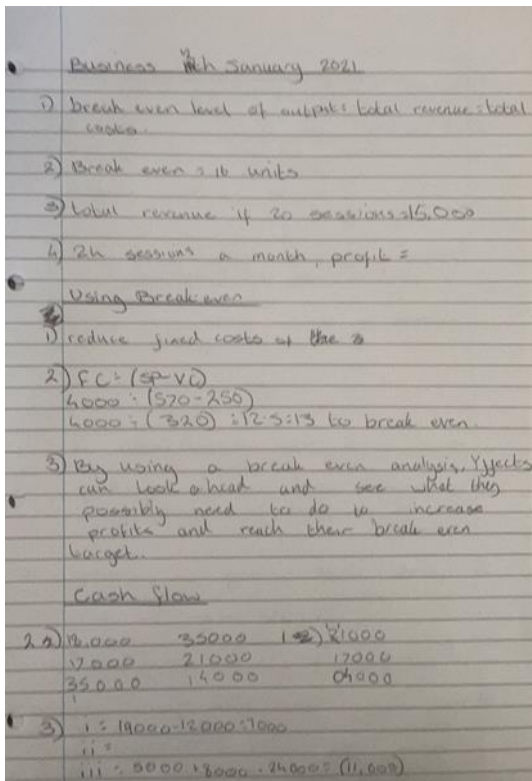 Business 11th January 2021
1) break even level of output = total revenue = total
costs.
2) Break even = 16 units
3) total revenue if 20 sessions = 15,000
4) 24 sessions a month, profit =
Using Break even
1) reduce fixed costs of the
2) FC ÷ (SP-VC)
4000 ÷ (570-250)
4000 ÷ (320) = 12.5 = 13 to break even.
3) By using a break even analysis, Yffects
can look ahead and see what they
possibly need to do to increase
profits and reach their break even
target.
Cash flow
35000
17000 21000 17000
35000 14000 04000
3) i = 19000-12000=7000
ii =
iii = 5000 + 8000 - 24000 = (11,000)